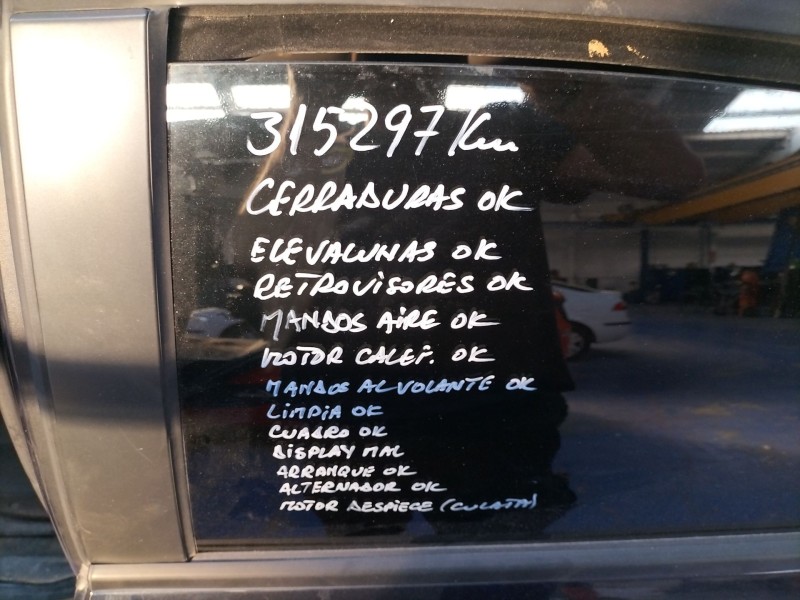 315297 Km
CERRADURAS OK
ELEVALUNAS OK
RETROVISORES OK
MANDOS AIRE OK
MOTOR CALEF. OK
MANDOS AL VOLANTE OK
LIMPIA OK
CUADRO OK
DISPLAY MAL
ARRANQUE OK
ALTERNADOR OK
MOTOR DESPIECE (CULATA)